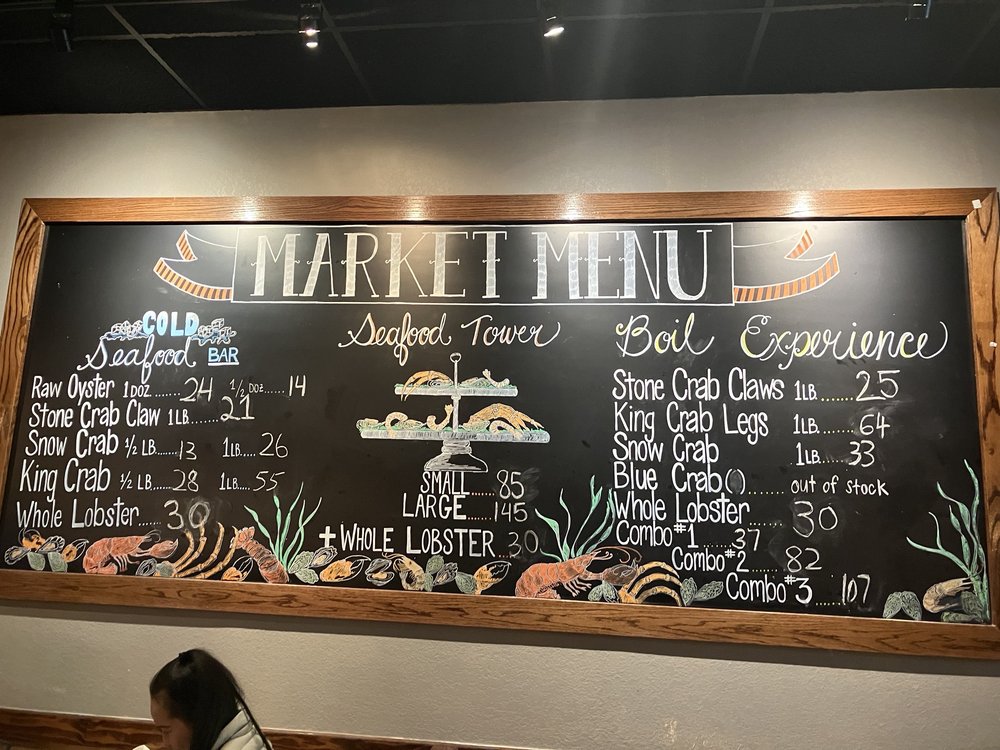 MARKET MENU
COLD
Seafood BAR
Raw Oyster 1 DOZ.......24 1/2 DOZ......14
Stone Crab Claw 1 LB........21
Snow Crab 1/2 LB.......13 1 LB.....26
King Crab 1/2 LB......28 1 LB....55
Whole Lobster..... 30
Seafood Tower
SMALL.....85
LARGE......145
+ WHOLE LOBSTER...30
Boil Experience
Stone Crab Claws 1 LB.......25
King Crab Legs 1 LB.......64
Snow Crab 1 LB.....33
Blue Crab ( ).......out of stock
Whole Lobster....... 30
Combo #1.....37
Combo #2.....82
Combo #3......107